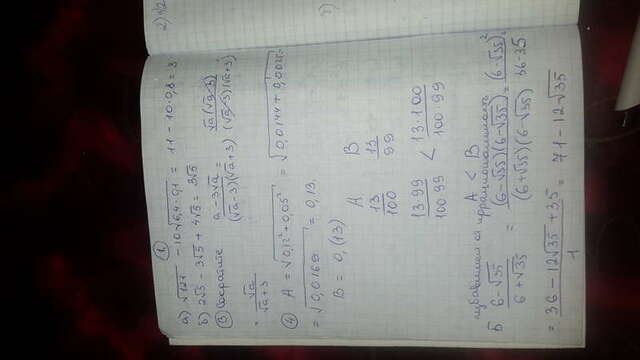 ①
а) √121 - 10√6,4·0,1 = 11 - 10·0,8 = 3
б) 2√5 - 3√5 + 4√5 = 3√5
③ Сократите
a-3√a / (√a-3)(√a+3) = √a(√a-3) / (√a-3)(√a+3) =
= √a / √a+3
④ A = √0,12² + 0,05² = √0,0144 + 0,0025 =
= √0,0169 = 0,13
B = 0,(13)
A B
13/100 13/99
13·99 / 100·99 < 13·100 / 100·99
A < B
избавимся от иррациональности
Б 6-√35 / 6+√35 = (6-√35)(6-√35) / (6+√35)(6-√35) = (6-√35)² / 36-35
= 36-12√35+35 / 1 = 71-12√35
2) √2